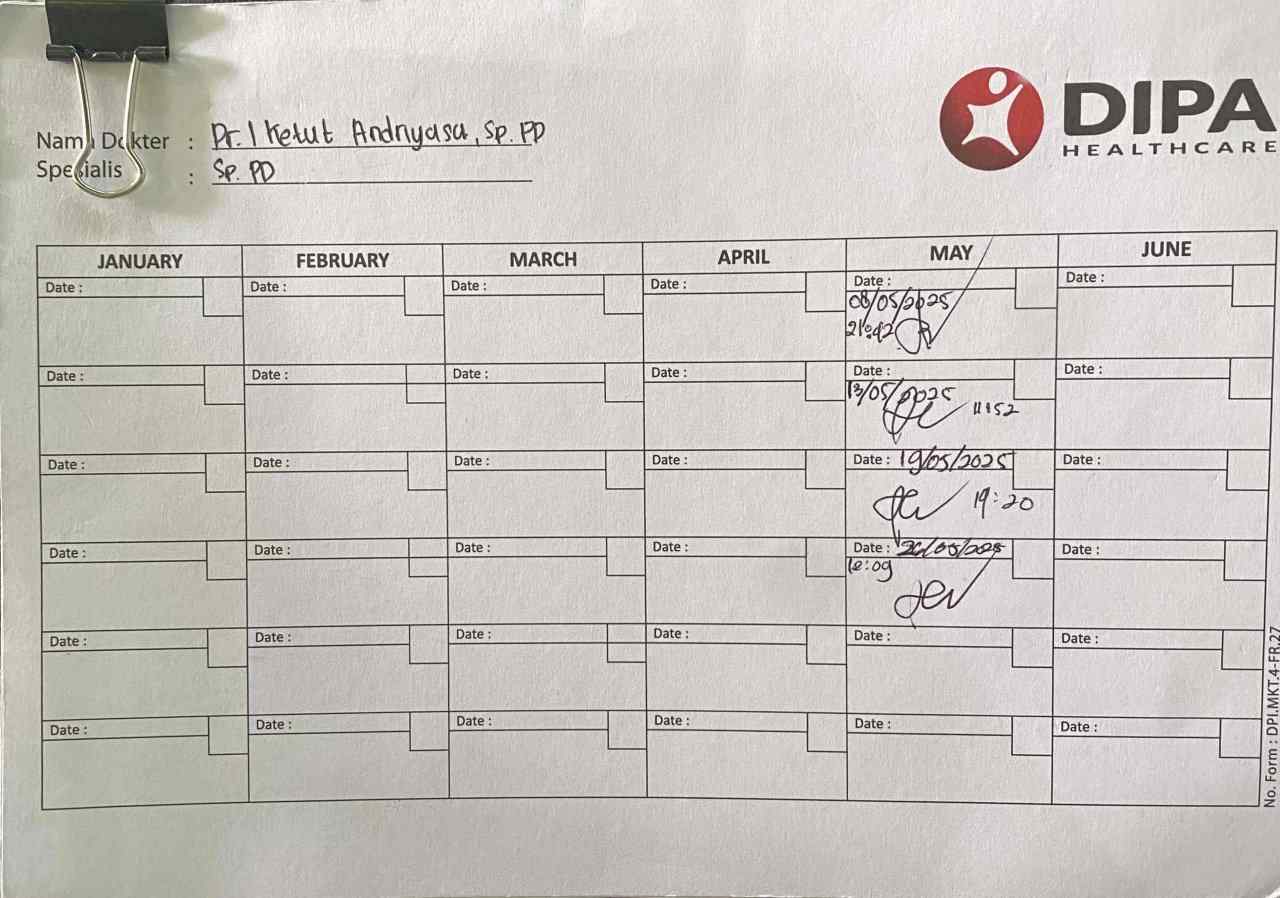 DIPA
HEALTHCARE
Nama Dokter : Dr. I Ketut Andriyasa, Sp. PD
Spesialis : Sp. PD
JANUARY FEBRUARY MARCH APRIL MAY JUNE
Date : Date : Date : Date : Date : Date :
08/05/2025
21:42
Date : Date : Date : Date : Date : Date :
13/05/2025
11:52
Date : Date : Date : Date : Date : 19/05/2025 Date :
19:20
Date : Date : Date : Date : Date : 26/05/2025 Date :
Date : Date : Date : Date : Date : Date :
Date : Date : Date : Date : Date : Date :
No. Form : DPI.MKT.4-FR.27